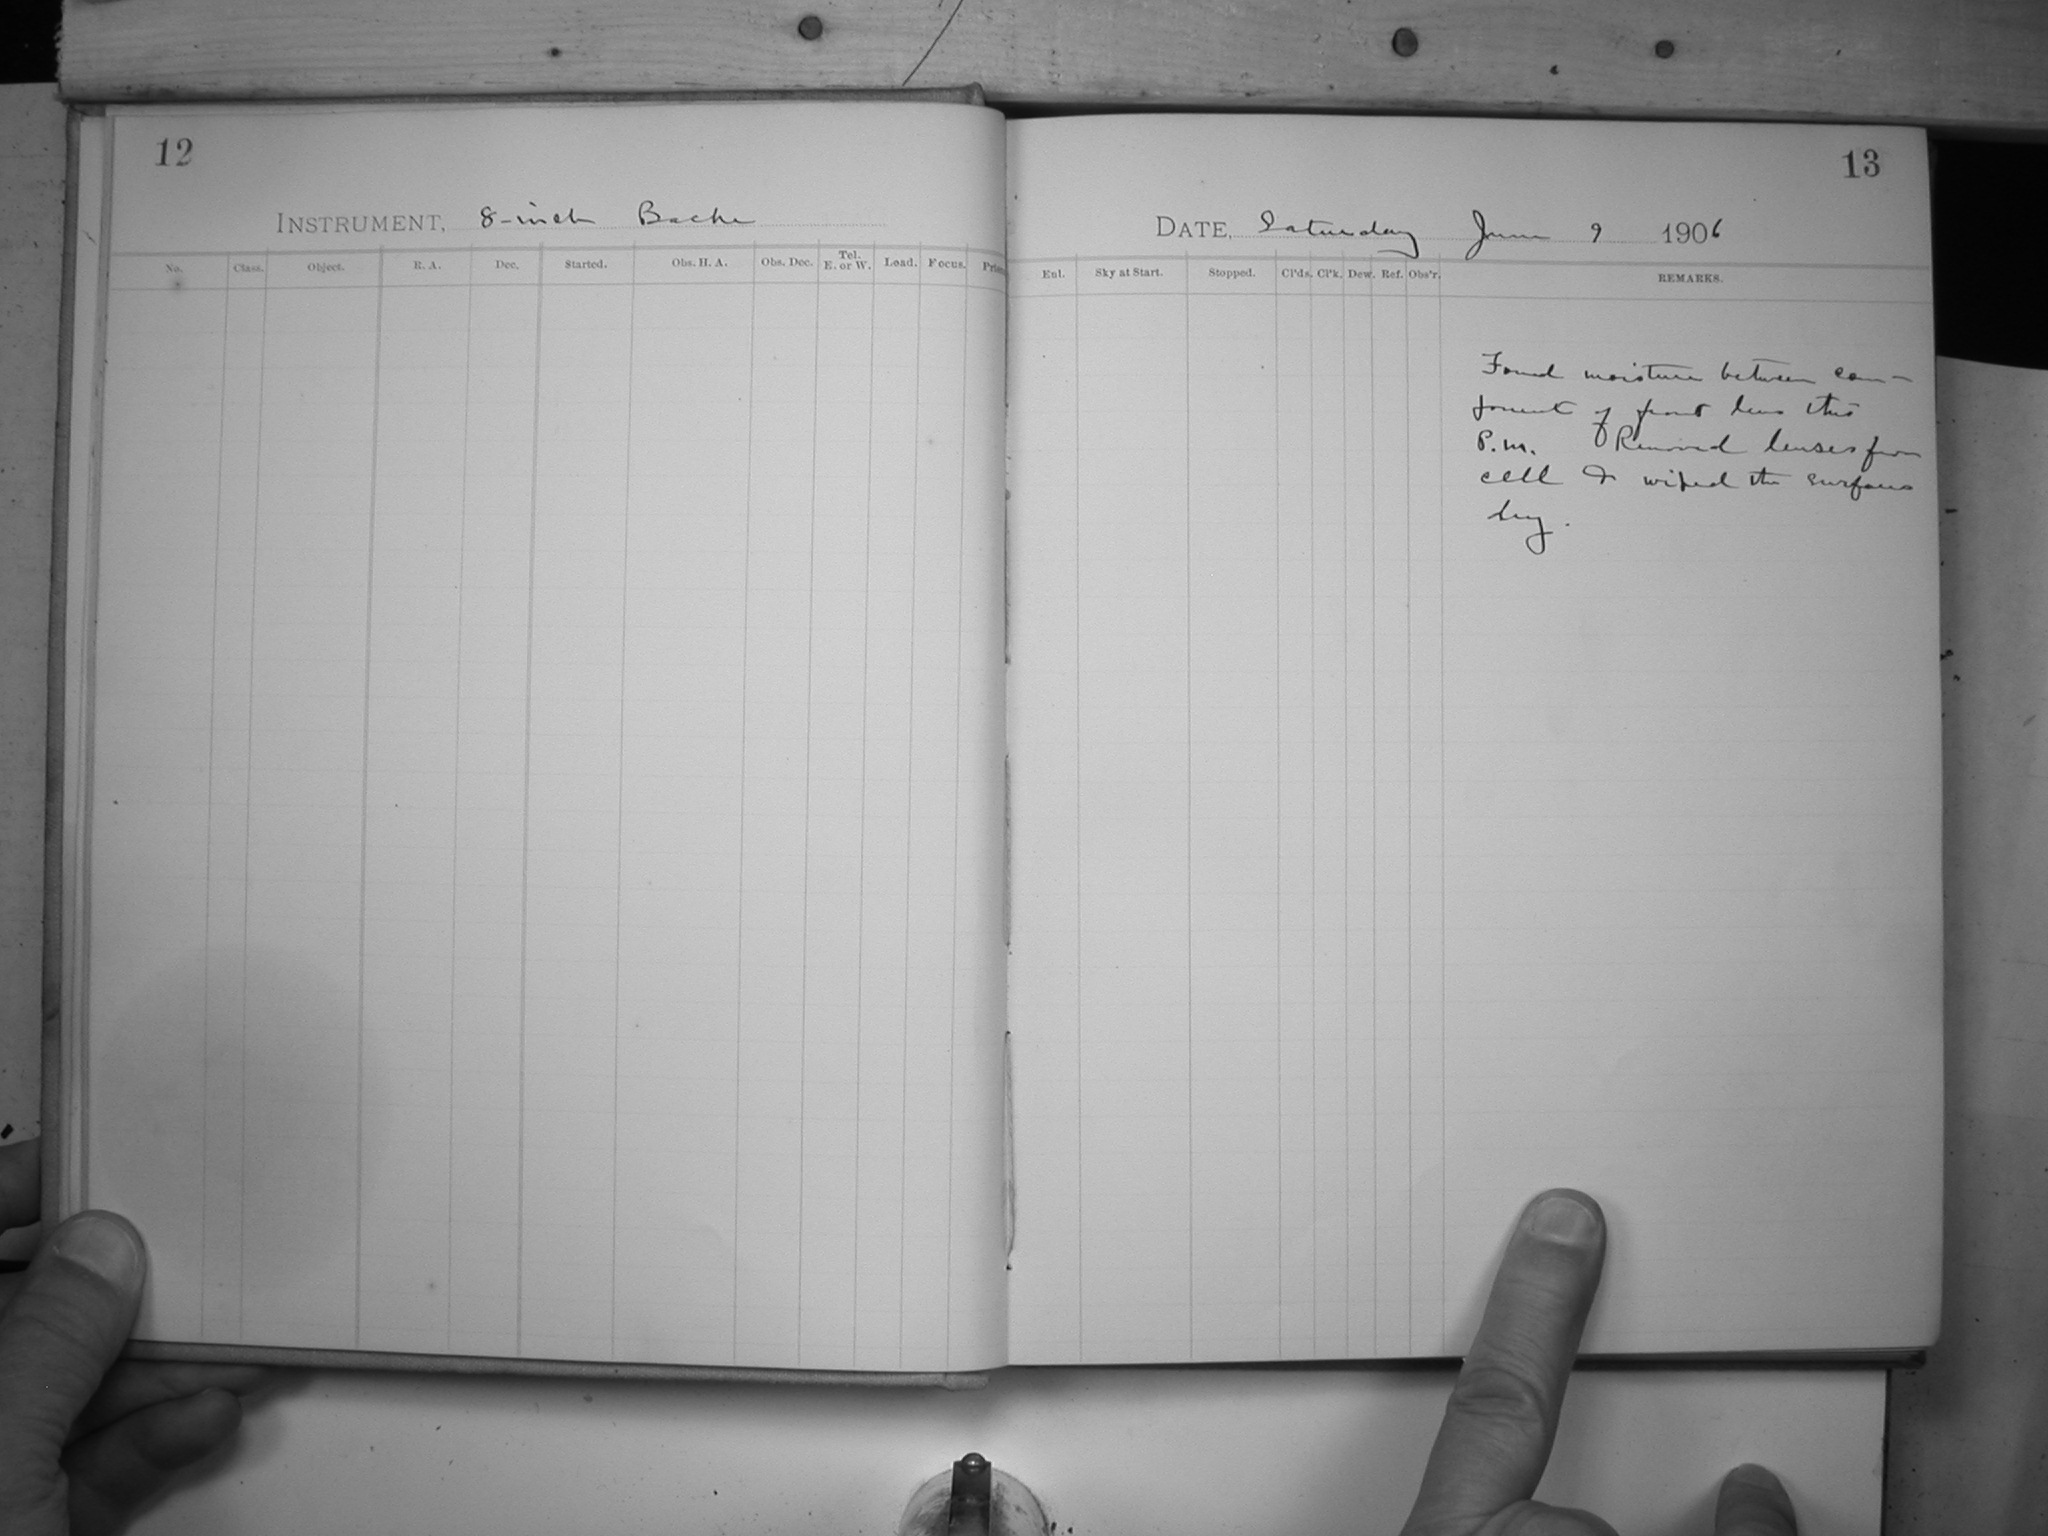 12
INSTRUMENT, 8-inch Bache
No. Class. Object. R. A. Dec. Started. Obs. H. A. Obs. Dec. Tel. E. or W. Load. Focus. Prism
13
DATE, Saturday June 9 1906
Eul. Sky at Start. Stopped. Cl'ds. Cl'k. Dew. Ref. Obs'r. REMARKS.
Found moisture between com-
ponent of front lens this
P.M. Removed lenses from
cell & wiped the surfaces
dry.